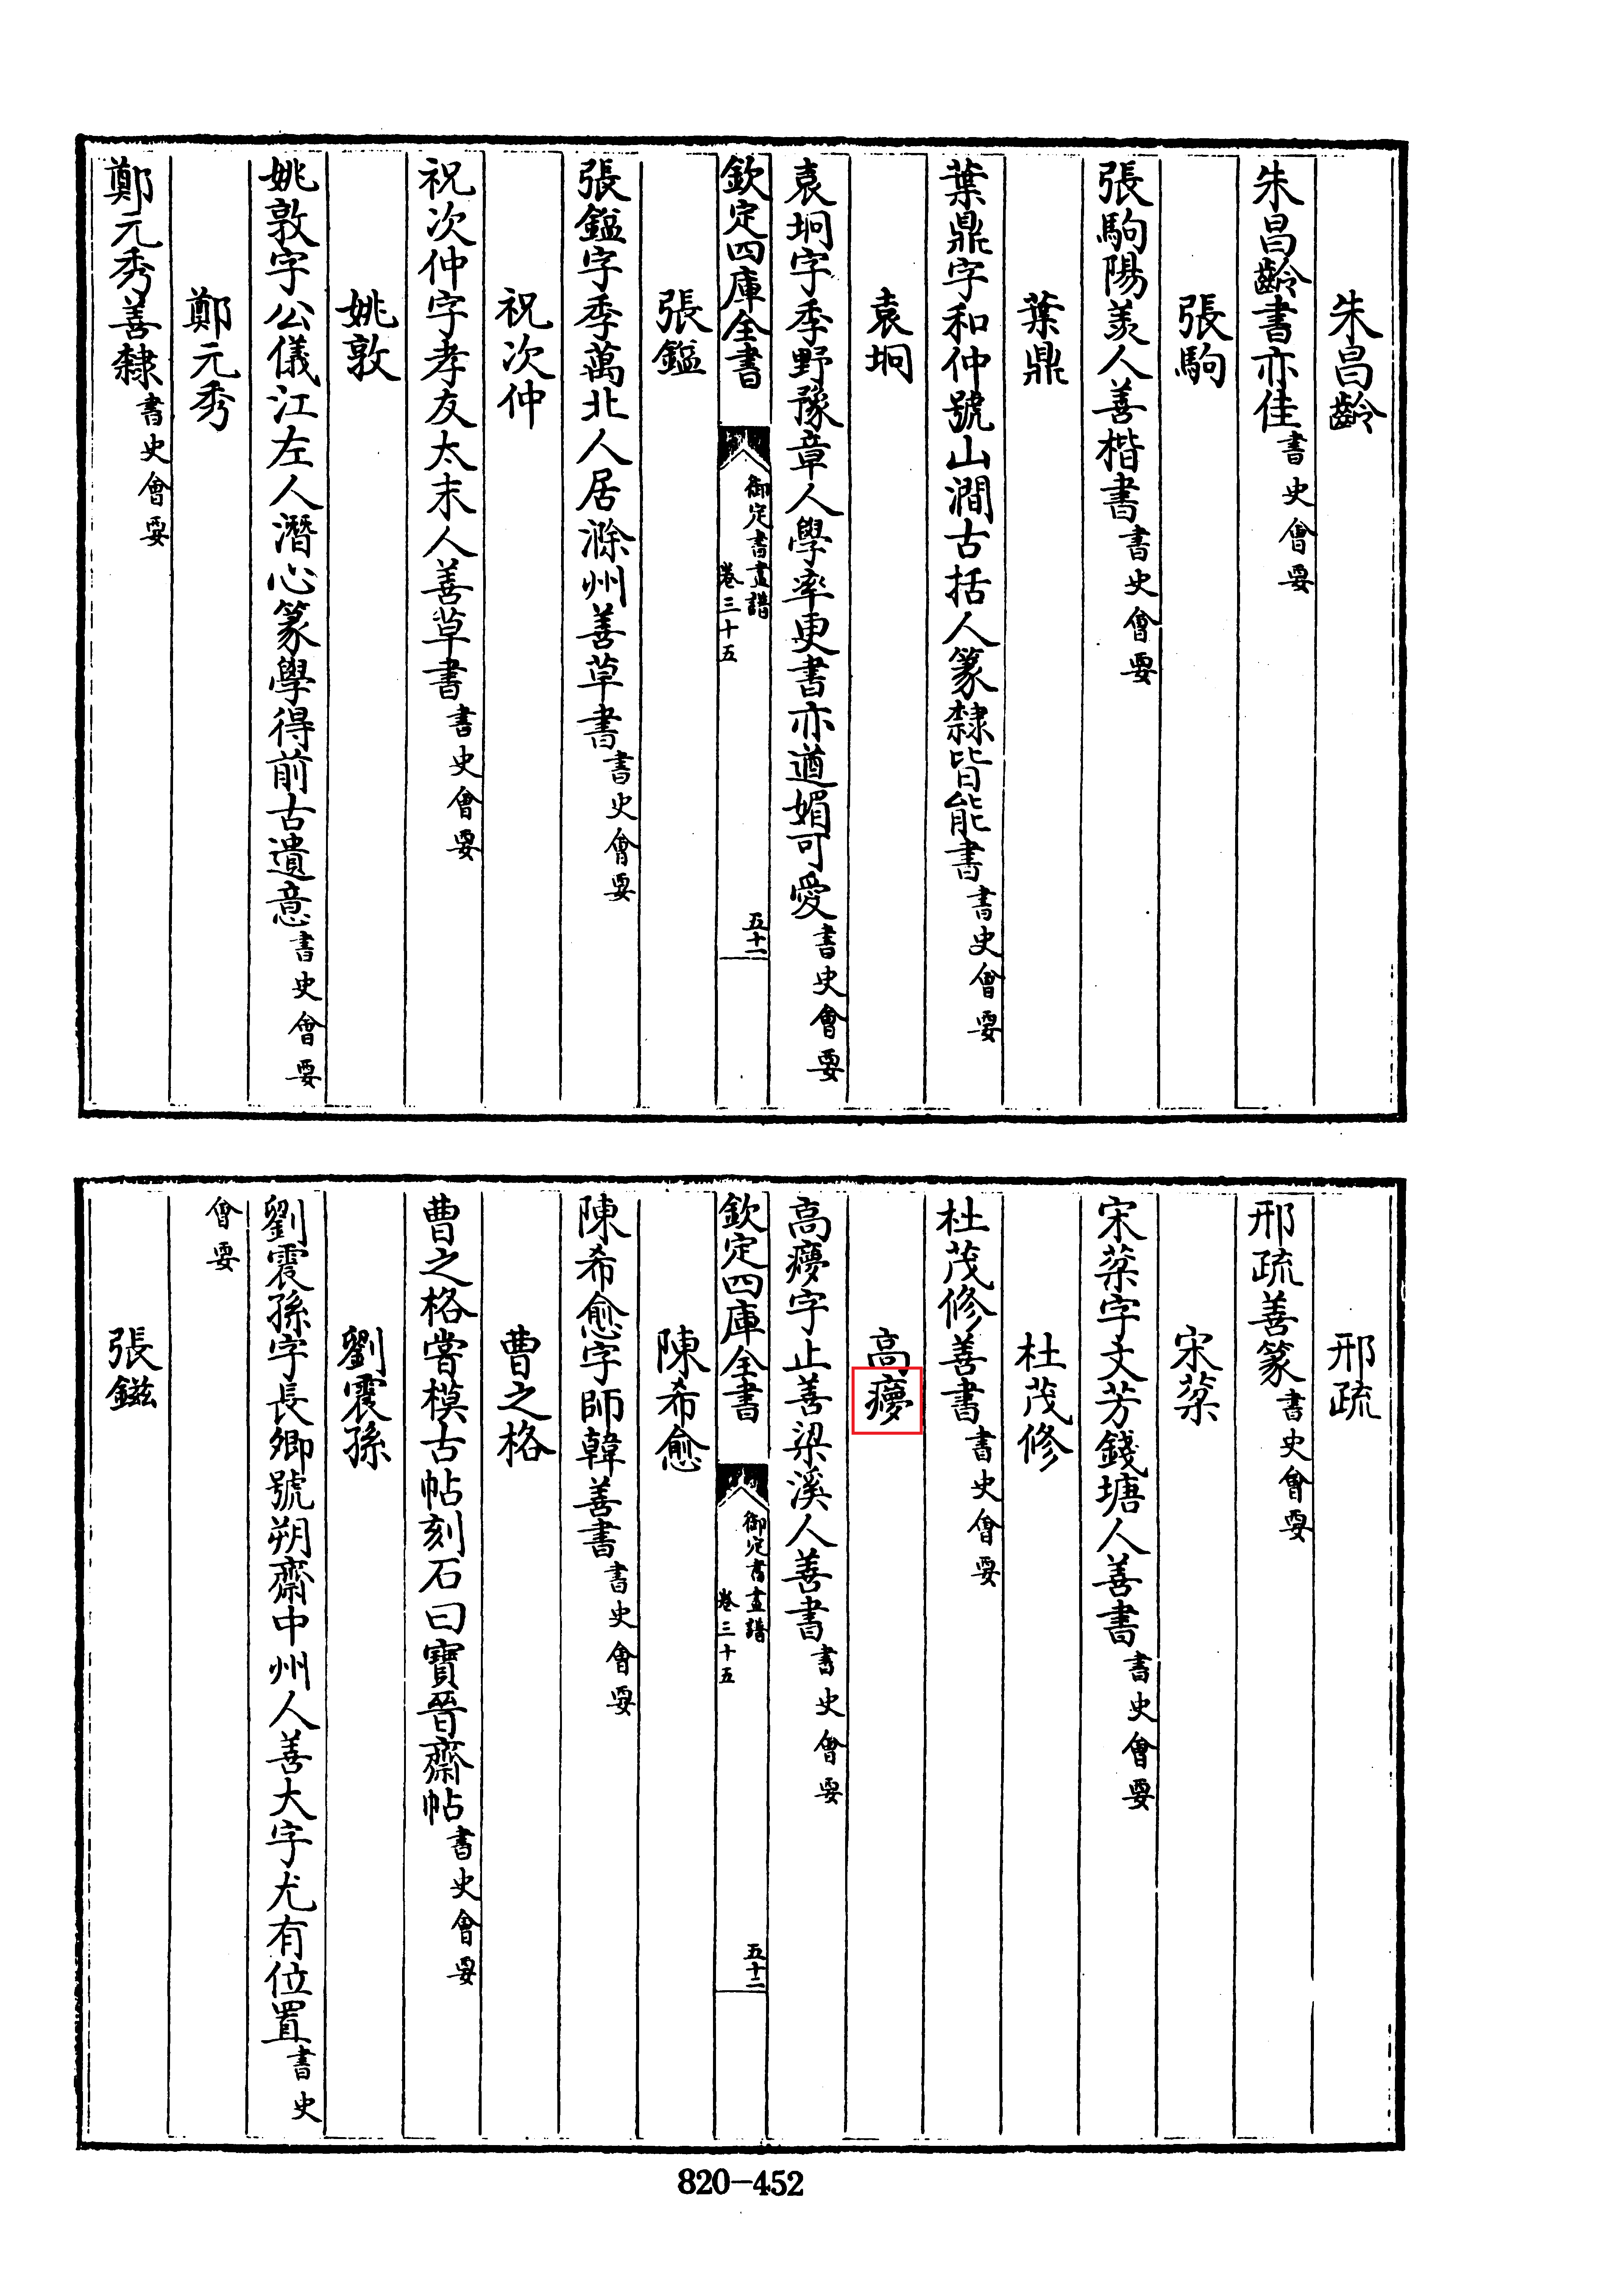 朱昌齡
朱昌齡書亦佳書史會要
張駒
張駒陽羨人善楷書書史會要
葉鼎
葉鼎字和仲號山澗古括人篆隸皆能書書史會要
袁坰
袁坰字季野豫章人學率更書亦遒媚可愛書史會要
欽定四庫全書
御定書畫譜
卷三十五
五十一
張鎰
張鎰字季萬北人居滁州善草書書史會要
祝次仲
祝次仲字孝友太末人善草書書史會要
姚敦
姚敦字公儀江左人潛心篆學得前古遺意書史會要
鄭元秀
鄭元秀善隸書史會要
邢疏
邢疏善篆書史會要
宋棻
宋棻字文芳錢塘人善書書史會要
杜茂修
杜茂修善書書史會要
高
高字止善梁溪人善書書史會要
欽定四庫全書
御定書畫譜
卷三十五
五十二
陳希愈
陳希愈字師韓善書書史會要
曹之格
曹之格嘗模古帖刻石曰寶晉齋帖書史會要
劉震孫
劉震孫字長卿號朔齋中州人善大字尤有位置書史
會要
張鎡
820-452